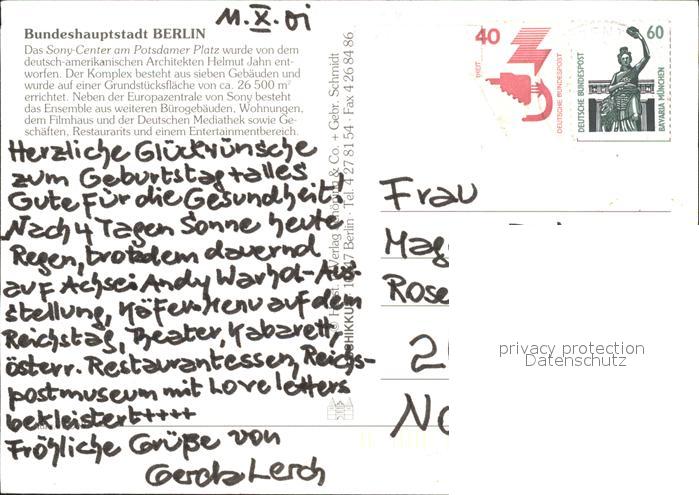 11.X.01
Bundeshauptstadt BERLIN
Das Sony-Center am Potsdamer Platz wurde von dem
deutsch-amerikanischen Architekten Helmut Jahn ent-
worfen. Der Komplex besteht aus sieben Gebäuden und
wurde auf einer Grundstücksfläche von ca. 26 500 m²
errichtet. Neben der Europazentrale von Sony besteht
das Ensemble aus weiteren Bürogebäuden, Wohnungen,
dem Filmhaus und der Deutschen Mediathek sowie Ge-
schäften, Restaurants und einem Entertainmentbereich.
Herzliche Glückwünsche
zum Geburtstag + alles
Gute für die Gesundheit!
Nach 4 Tagen Sonne heute
Regen, trotzdem dauernd
auf Achse: Andy Warhol-Aus-
stellung, Käfer-Menu auf dem
Reichstag, Theater, Kabarett,
österr. Restaurantessen, Reichs-
postmuseum mit Love letters
bekleistert++++
Fröhliche Grüße von
Gerda Lerch
Verlag Schöning & Co. + Gebr. Schmidt
10947 Berlin · Tel. 4 27 81 54 · Fax 4 26 84 86
40
DEUTSCHE BUNDESPOST
60
DEUTSCHE BUNDESPOST
BAVARIA MÜNCHEN
Frau
Mag
Rose
2
No
privacy protection
Datenschutz